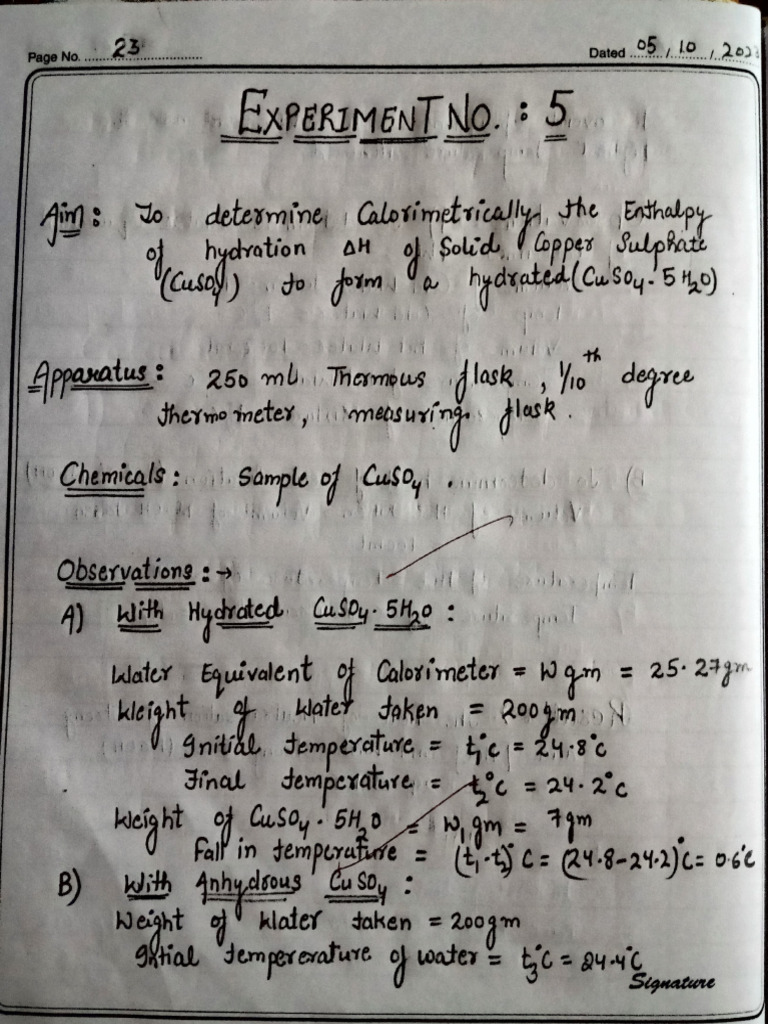 Page No. 23
Dated 05 / 10 / 202
EXPERIMENT NO. : 5
Aim : To determine Calorimetrically, the Enthalpy
of hydration ΔH of Solid Copper Sulphate
(CuSO₄) to form a hydrated (CuSO₄·5H₂O)
Apparatus : 250 mL Thermous flask, 1/10th degree
thermometer, measuring flask.
Chemicals : Sample of CuSO₄.
Observations : →
A) With Hydrated CuSO₄·5H₂O :
Water Equivalent of Calorimeter = W gm = 25.27gm
Weight of Water taken = 200gm
Initial temperature = t₁°C = 24.8°C
Final temperature = t₂°C = 24.2°C
Weight of CuSO₄·5H₂O = W₁ gm = 7gm
Fall in temperature = (t₁-t₂)°C = (24.8-24.2)°C = 0.6°C
B) With Anhydrous CuSO₄ :
Weight of Water taken = 200gm
Initial tempererature of water = t₃°C = 24.4°C
Signature